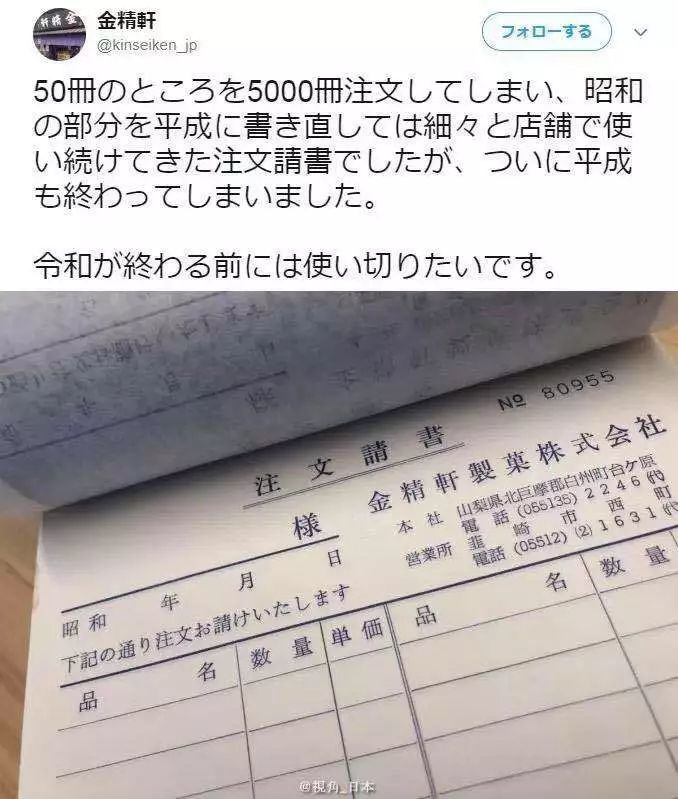 金精軒
@kinseiken_jp
フォローする
50冊のところを5000冊注文してしまい、昭和
の部分を平成に書き直しては細々と店舗で使
い続けてきた注文請書でしたが、ついに平成
も終わってしまいました。
令和が終わる前には使い切りたいです。
№ 80955
注文請書
様
金精軒製菓株式会社
本社 山梨県北巨摩郡白州町台ケ原
電話 (055135) 2246 ㈹
営業所 韮崎市西町
電話 (05512) ⑵ 1631 ㈹
昭和 年 月 日
下記の通り注文お請けいたします
品名 数量 単価 品名 数量
@視角_日本